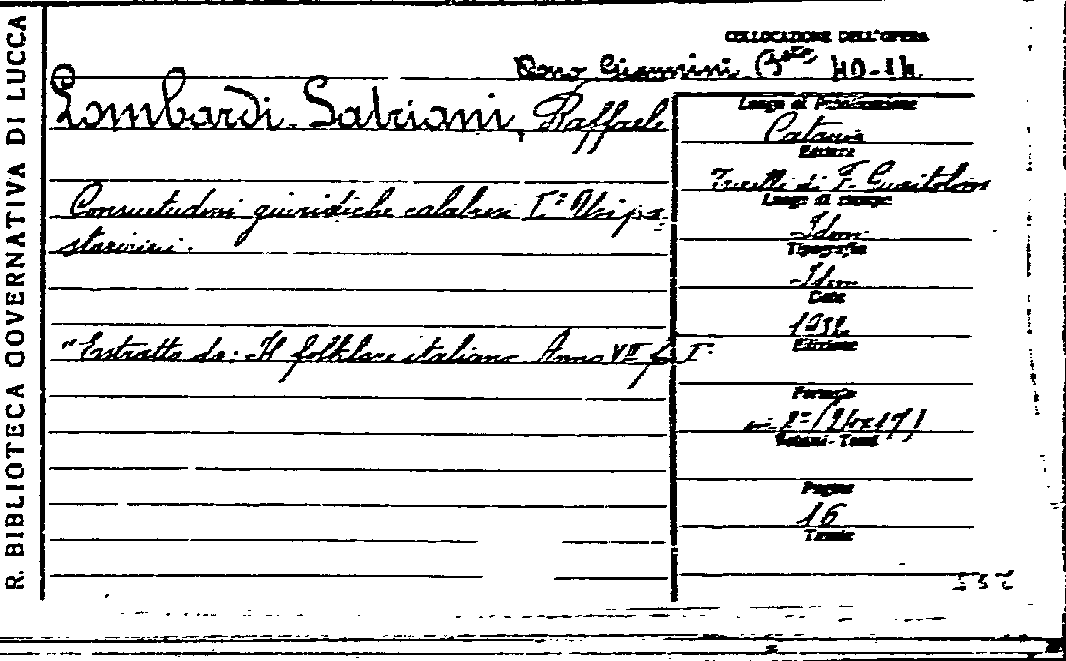 R. BIBLIOTECA GOVERNATIVA DI LUCCA
COLLOCAZIONE DELL'OPERA
Dono Giannini Bta 40-14
Lombardi-Satriani, Raffaele
Consuetudini giuridiche calabresi I.° Usi pa-
storizi.
"Estratto da: Il folklore italiano Anno VII f. I°
Luogo di Pubblicazione
Catania
Editore
Tirelli di F. Guaitolini
Luogo di stampa
Idem
Tipografia
Idem
Data
1932
Edizione
Formato
in 8° (24x17)
Volumi - Tomi
Pagine
16
Tavole